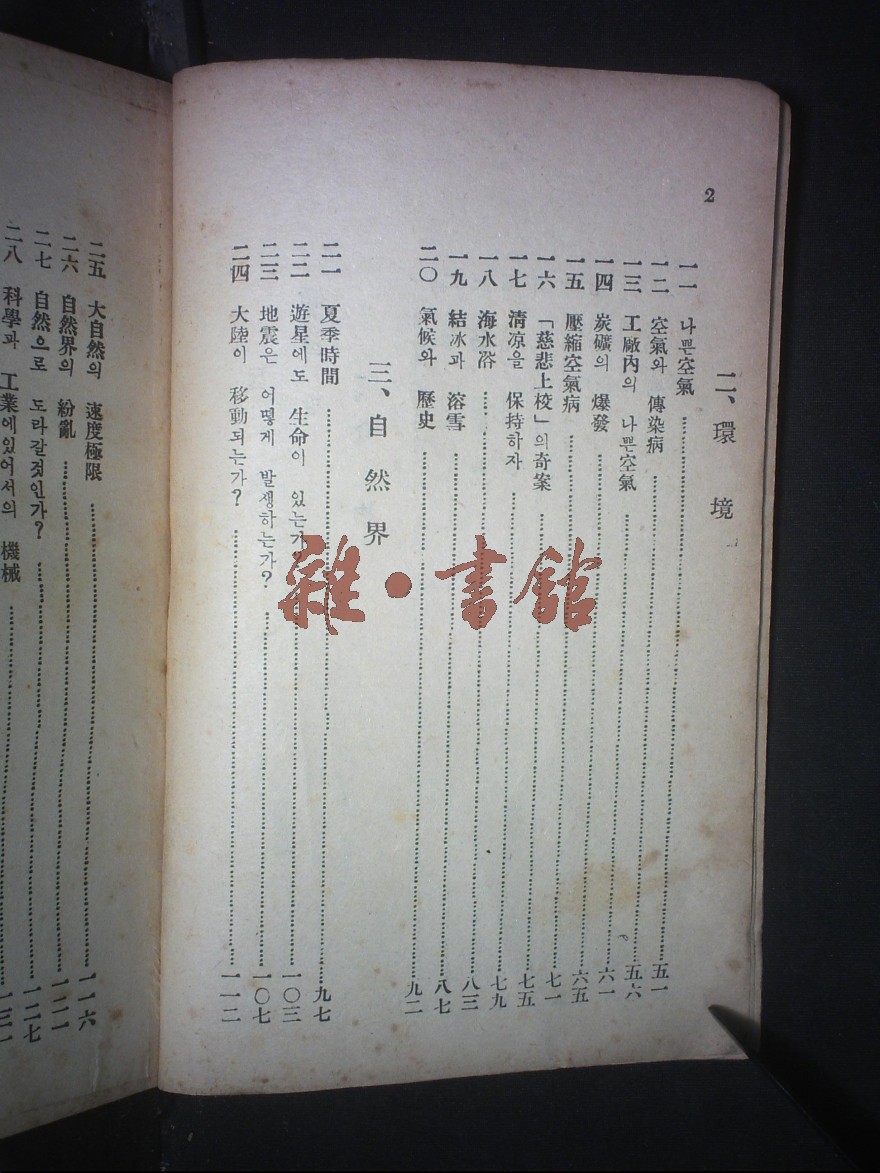 2
二、環境
一一 나쁜空氣 五一
一二 空氣와 傳染病 五六
一三 工廠內의 나쁜空氣 六一
一四 炭礦의 爆發 六五
一五 壓縮空氣病 七一
一六 「慈悲上校」의奇案 七五
一七 淸凉을 保持하자 七九
一八 海水浴 八三
一九 結冰과 溶雪 八七
二〇 氣候와 歷史 九二
三、自然界
二一 夏季時間 九七
二二 遊星에도 生命이 있는가? 一〇三
二三 地震은 어떻게 발생하는가? 一〇七
二四 大陸이 移動되는가? 一一二
二五 大自然의 速度極限 一一六
二六 自然界의 紛亂 一二一
二七 自然으로 도라갈것인가? 一二七
二八 科學과 工業에있어서의 機械 一三一
雜·書館